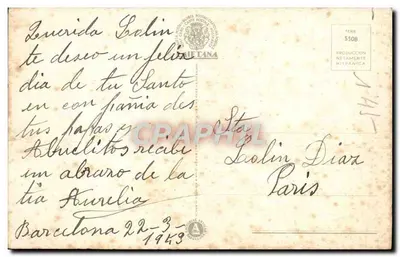 Querida Lolin
te deseo un feliz
dia de tu Santo
en con pañia des
tus papas y
Abuelitos recibe
un abrazo de la
tia Aurelia
Barcelona 22-3-
1943
SERIE
3308
PRODUCCION
NETAMENTE
141-
Sta
Lolin Diaz
Paris
www.cparama.com
A